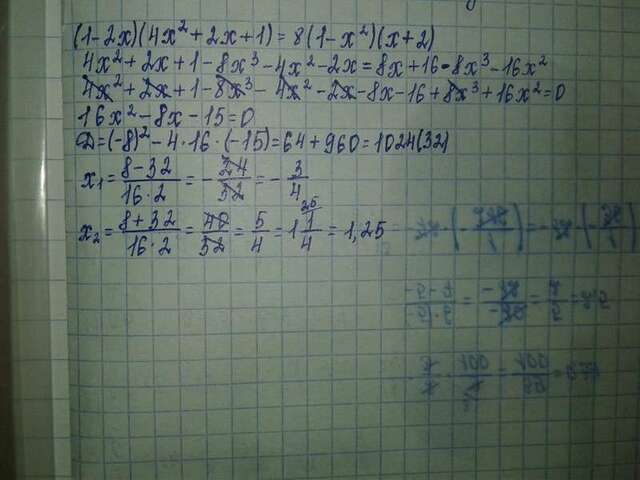 (1-2x)(4x²+2x+1)=8(1-x²)(x+2)
4x²+2x+1-8x³-4x²-2x=8x+16-8x³-16x²
4x²+2x+1-8x³-4x²-2x-8x-16+8x³+16x²=0
16x²-8x-15=0
D=(-8)²-4·16·(-15)=64+960=1024(32)
x₁=(8-32)/(16·2)=-24/32=-3/4
x₂=(8+32)/(16·2)=40/32=5/4=1 1/4=1,25